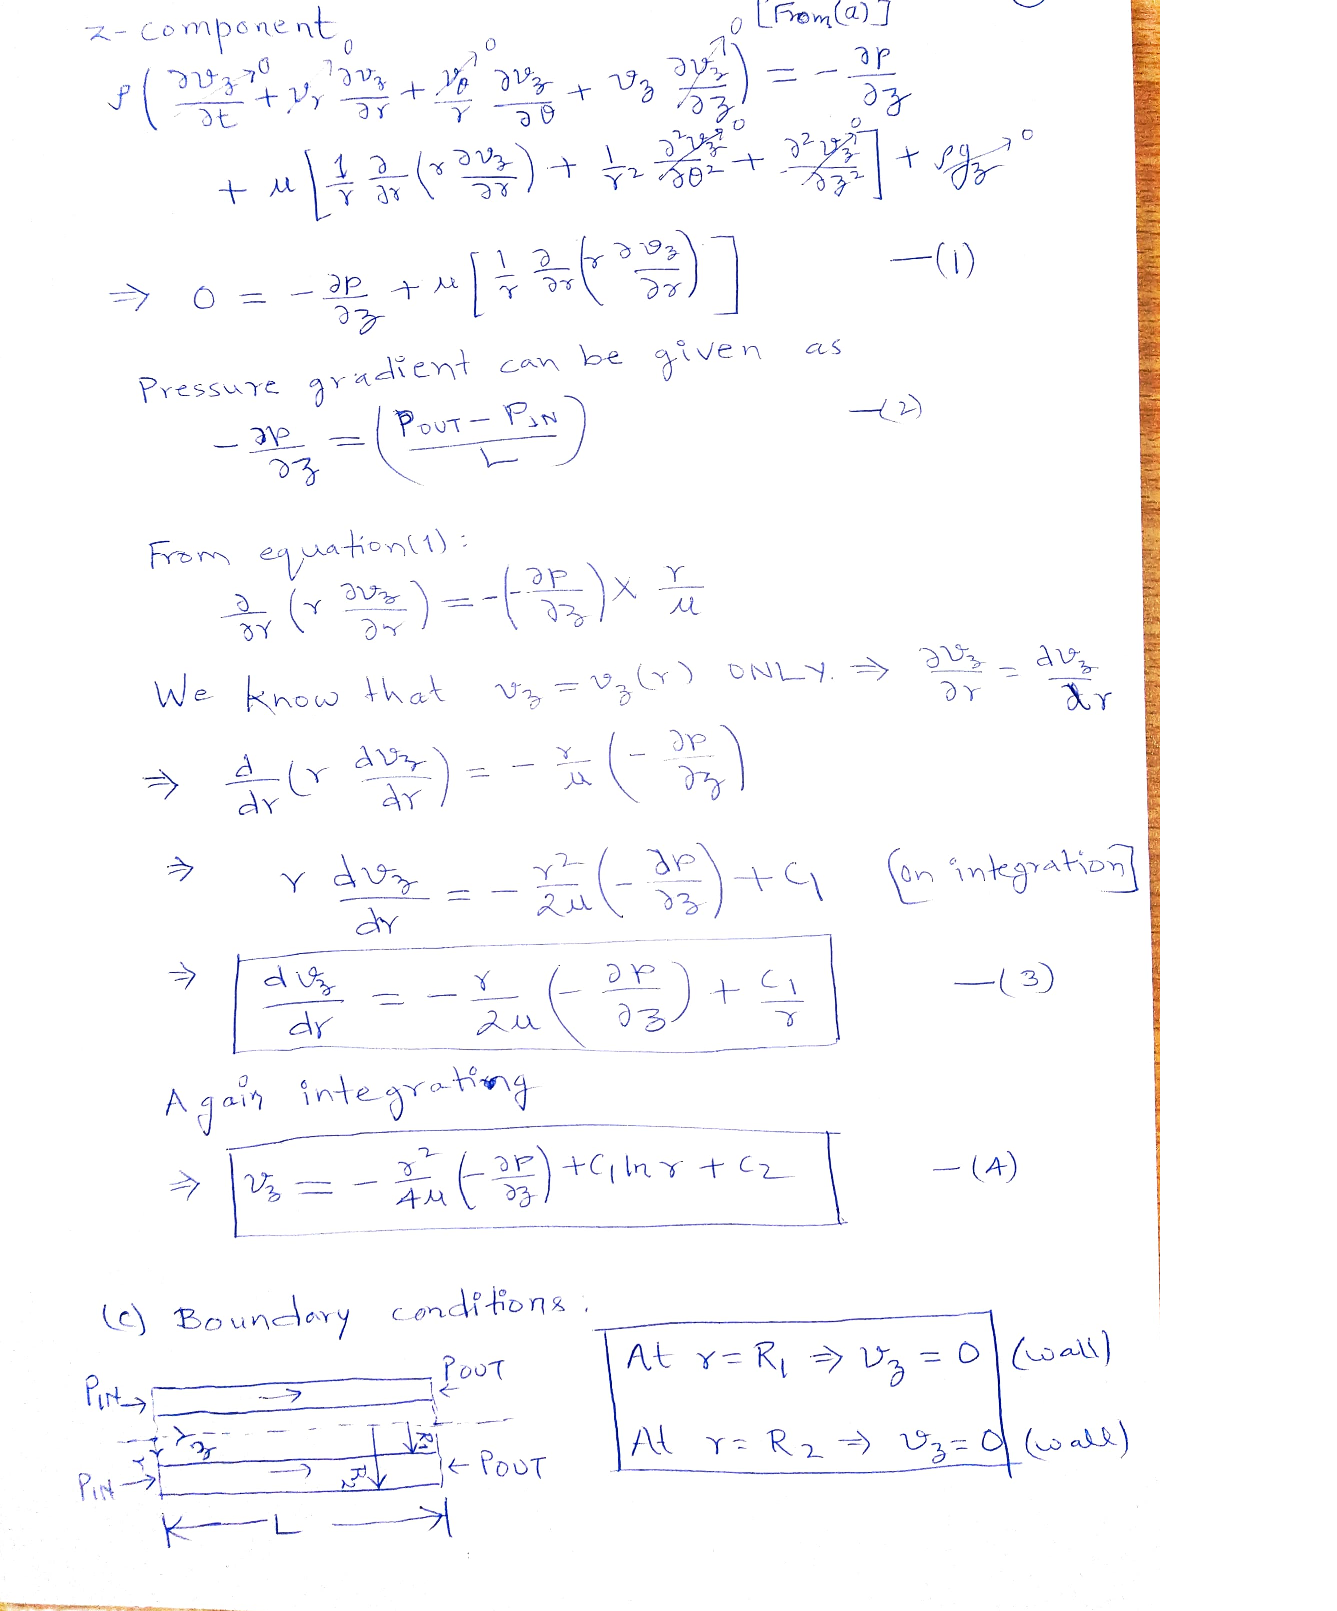 z-component, 0 [From(a)]
ρ(∂v_z/∂t→0 + v_r→0 ∂v_z/∂r + v_θ/r→0 ∂v_z/∂θ + v_z ∂v_z/∂z→0) = -∂p/∂z
+ μ[1/r ∂/∂r(r ∂v_z/∂r) + 1/r² ∂²v_z/∂θ²→0 + ∂²v_z/∂z²→0] + ρg_z→0
⇒ 0 = -∂p/∂z + μ[1/r ∂/∂r(r ∂v_z/∂r)] —(1)
Pressure gradient can be given as
-∂p/∂z = (P_OUT - P_IN/L) —(2)
From equation(1):
∂/∂r(r ∂v_z/∂r) = -(-∂p/∂z) × r/μ
We know that v_z = v_z(r) ONLY. ⇒ ∂v_z/∂r = dv_z/dr
⇒ d/dr(r dv_z/dr) = -r/μ(-∂p/∂z)
⇒ r dv_z/dr = -r²/2μ(-∂p/∂z) + C₁ [on integration]
⇒ dv_z/dr = -r/2μ(-∂p/∂z) + C₁/r —(3)
Again integrating
⇒ v_z = -r²/4μ(-∂p/∂z) + C₁ ln r + C₂ —(4)
(c) Boundary conditions:
At r = R₁ ⇒ v_z = 0 (wall)
At r = R₂ ⇒ v_z = 0 (wall)
P_IN→ →  P_OUT
r z R₁
P_IN→ → R₂ ← P_OUT
L